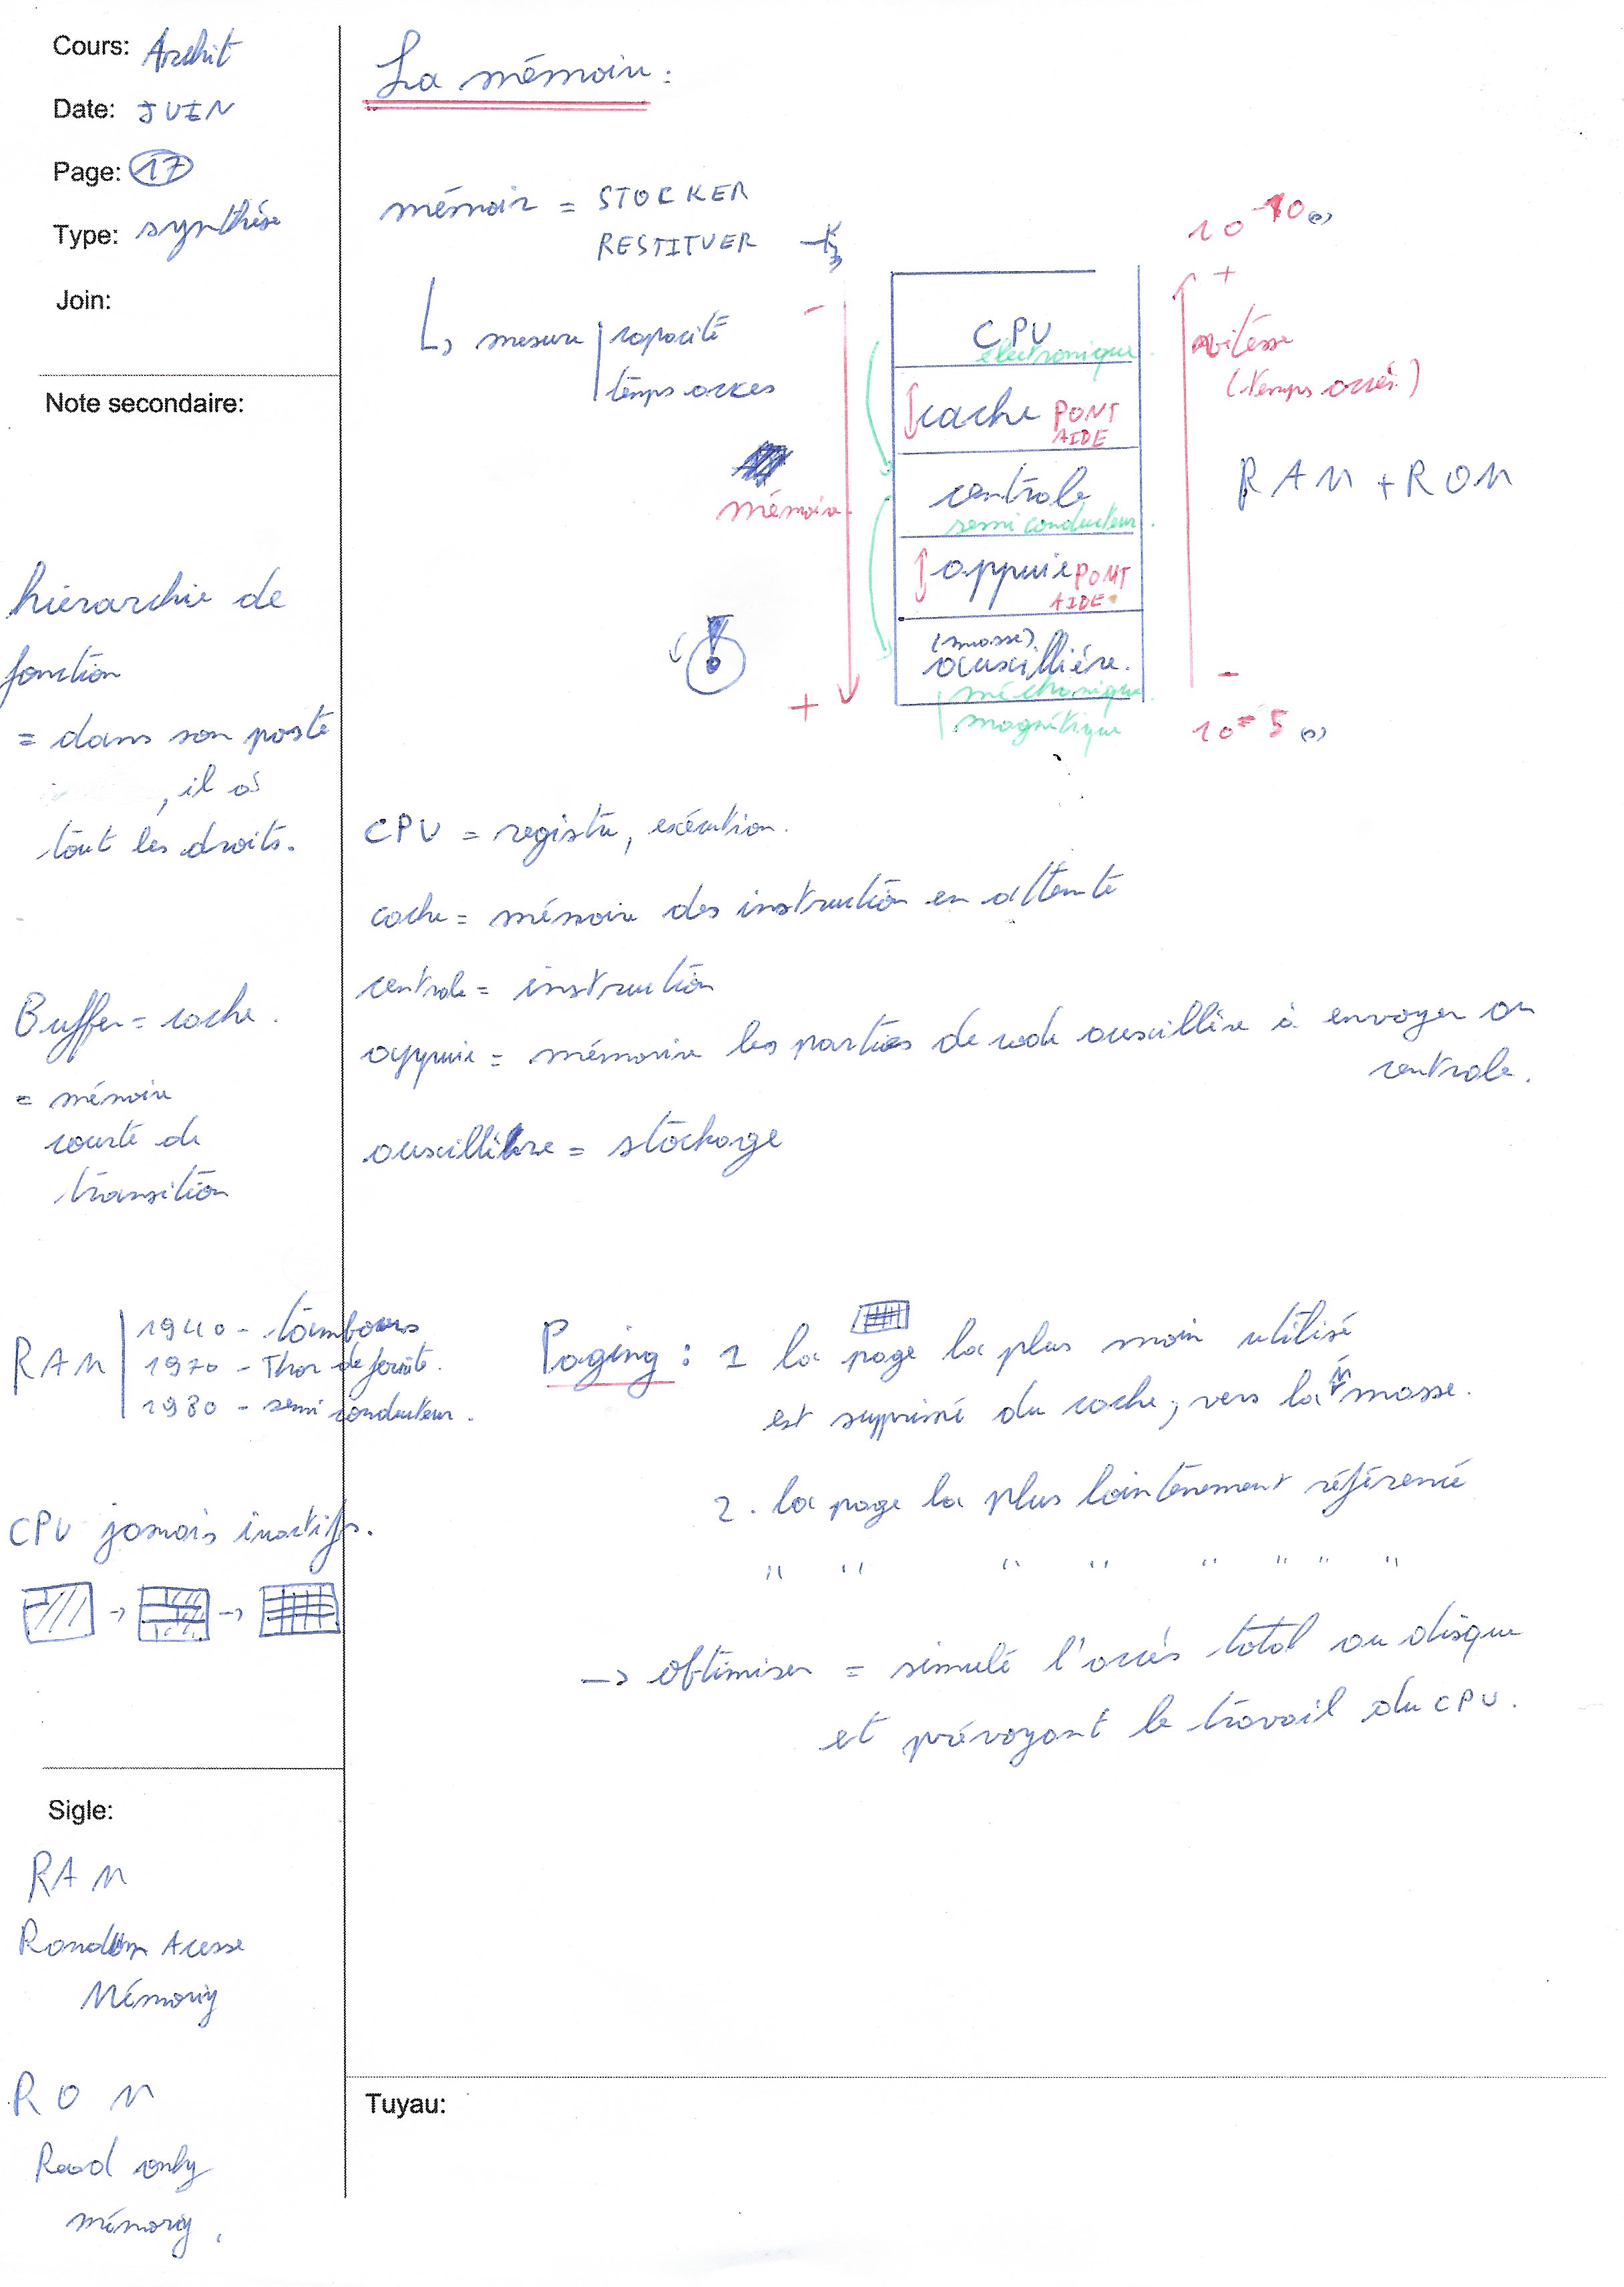 Cours: Archit
Date: JUIN
Page: 17
Type: synthèse
Join:
Note secondaire:
hiérarchie de
fonction
= dans son poste
, il a
tout les droits.
Buffer = cache.
= mémoire
courte de
transition
RAM
1940 - tambours
1970 - Thor de ferite.
1980 - semi conducteur.
CPU jamais inactifs.
Sigle:
RAM
Random Acesse
Mémory
ROM
Read only
mémory.
La mémoire:
mémoire = STOCKER
RESTITUER
mesure
capacité
temps acces
mémoire
-
+
CPU
électronique.
cache PONT
AIDE
centrale
semi conducteur.
appuie PONT
AIDE
(masse)
auxillière.
méchanique
magnétique
10^-10 (s)
+
vitesse
(temps accès)
RAM + ROM
-
10^-5 (s)
CPU = registre, exécution.
cache = mémoire des instruction en attente
centrale = instruction
appuie = mémorise les parties de code auxillière à envoyer au
centrale.
auxillière = stockage
Paging: 1 la page la plus moin utilisé
est supprimé du cache, vers la M masse.
2. la page la plus lointènement référencé
" " " " " " " "
-> optimiser = simulé l'accès total au disque
et prévoyant le travail du CPU.
Tuyau: